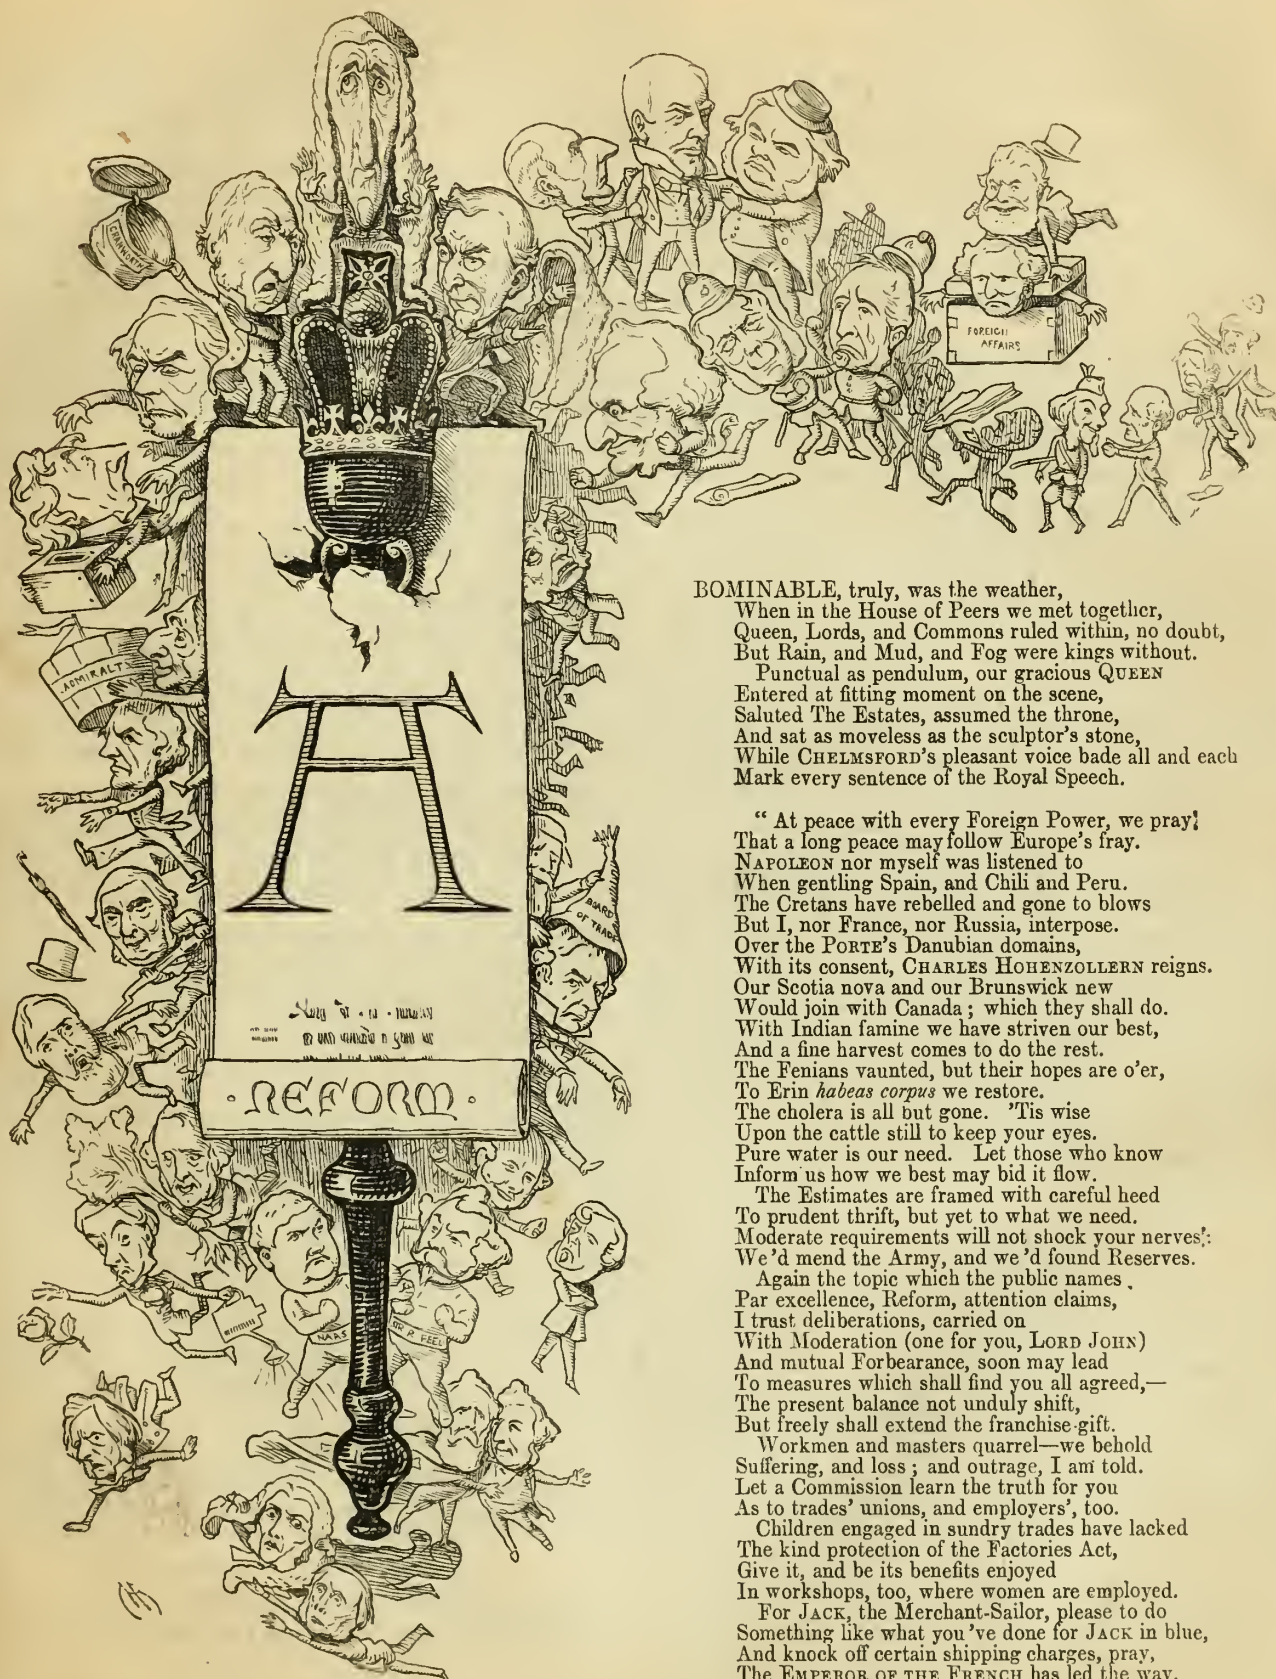 CRANWORTH
FOREIGN
AFFAIRS
ADMIRALTY
BOARD
OF TRADE
A
· REFORM ·
NAAS
SIR R. PEEL
BOMINABLE, truly, was the weather,
When in the House of Peers we met together,
Queen, Lords, and Commons ruled within, no doubt,
But Rain, and Mud, and Fog were kings without.
Punctual as pendulum, our gracious QUEEN
Entered at fitting moment on the scene,
Saluted The Estates, assumed the throne,
And sat as moveless as the sculptor's stone,
While CHELMSFORD's pleasant voice bade all and each
Mark every sentence of the Royal Speech.
"At peace with every Foreign Power, we pray
That a long peace may follow Europe's fray.
NAPOLEON nor myself was listened to
When gentling Spain, and Chili and Peru.
The Cretans have rebelled and gone to blows
But I, nor France, nor Russia, interpose.
Over the PORTE's Danubian domains,
With its consent, CHARLES HOHENZOLLERN reigns.
Our Scotia nova and our Brunswick new
Would join with Canada; which they shall do.
With Indian famine we have striven our best,
And a fine harvest comes to do the rest.
The Fenians vaunted, but their hopes are o'er,
To Erin habeas corpus we restore.
The cholera is all but gone. 'Tis wise
Upon the cattle still to keep your eyes.
Pure water is our need. Let those who know
Inform us how we best may bid it flow.
The Estimates are framed with careful heed
To prudent thrift, but yet to what we need.
Moderate requirements will not shock your nerves:
We'd mend the Army, and we'd found Reserves.
Again the topic which the public names
Par excellence, Reform, attention claims,
I trust deliberations, carried on
With Moderation (one for you, LORD JOHN)
And mutual Forbearance, soon may lead
To measures which shall find you all agreed,—
The present balance not unduly shift,
But freely shall extend the franchise-gift.
Workmen and masters quarrel—we behold
Suffering, and loss; and outrage, I am told.
Let a Commission learn the truth for you
As to trades' unions, and employers', too.
Children engaged in sundry trades have lacked
The kind protection of the Factories Act,
Give it, and be its benefits enjoyed
In workshops, too, where women are employed.
For JACK, the Merchant-Sailor, please to do
Something like what you've done for JACK in blue,
And knock off certain shipping charges, pray,
The EMPEROR OF THE FRENCH has led the way.